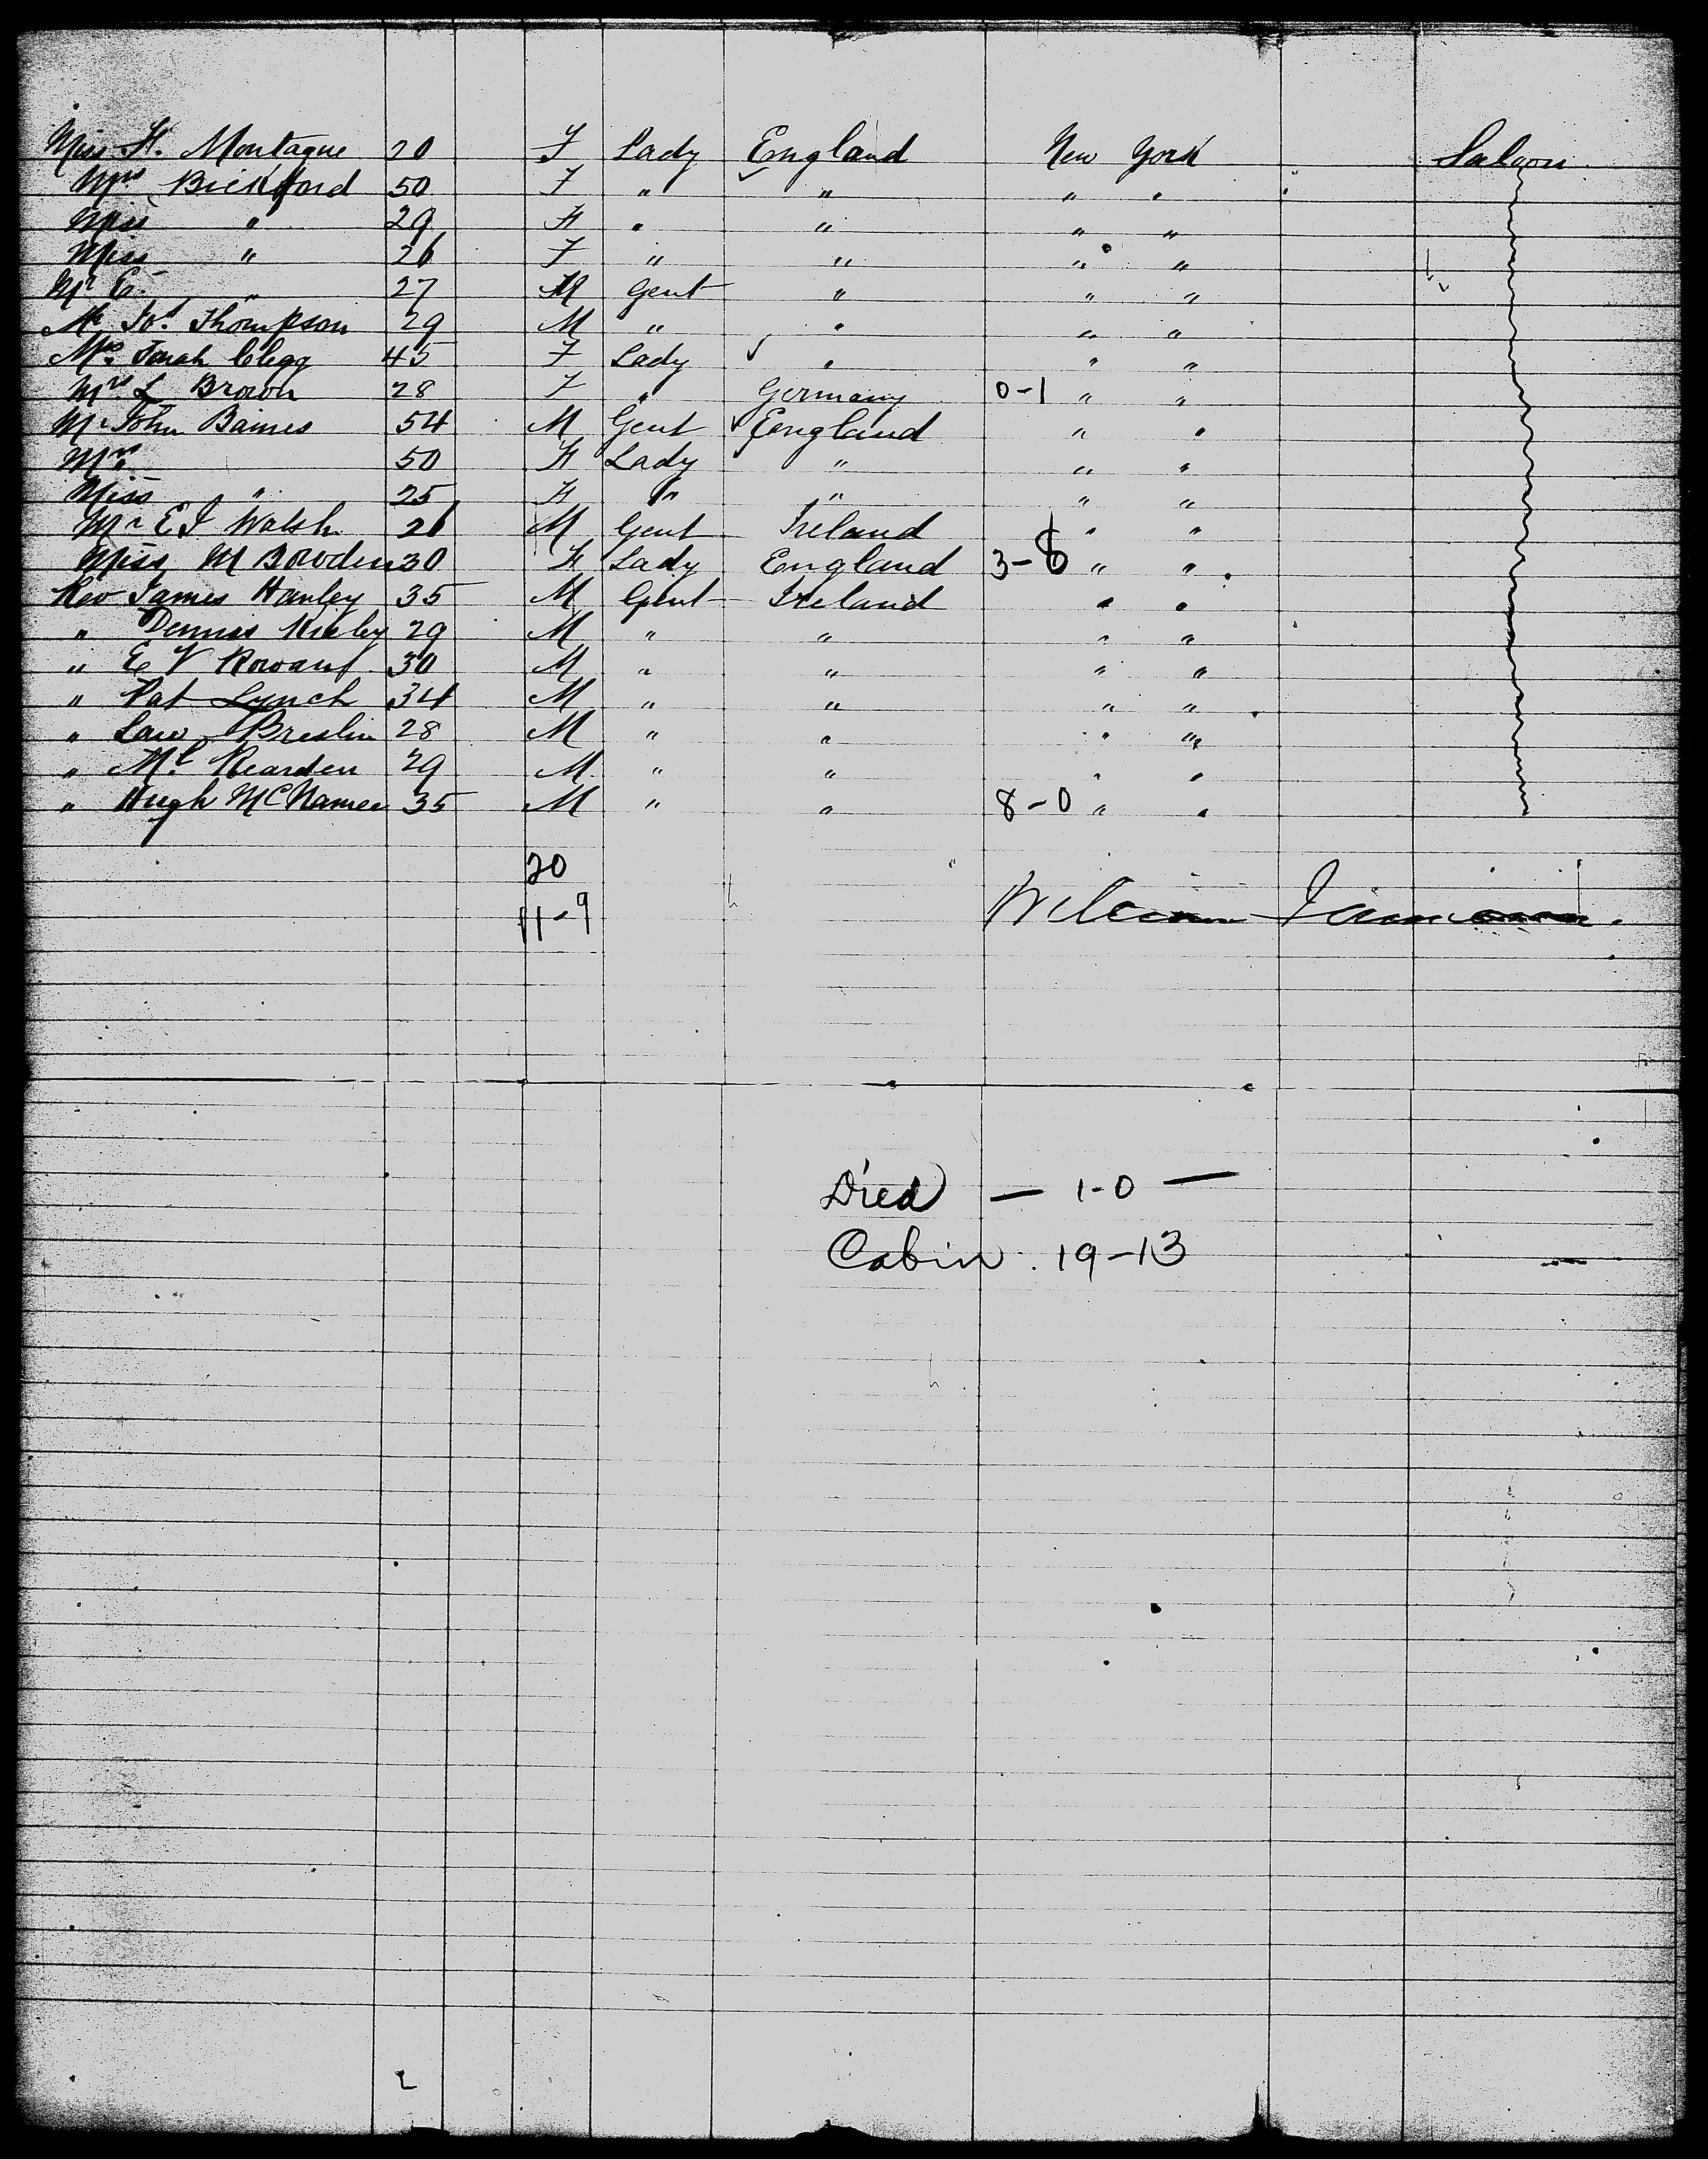 Miss F. Montague 20 F Lady England New York Saloon
Mrs Bickford 50 F " " " "
Miss " 29 F " " " "
Miss " 26 F " " " "
Mr E. " 27 M Gent " " "
Mr Jos. Thompson 29 M " " " "
Mrs Sarah Clegg 45 F Lady " " "
Mrs L Brown 28 F " Germany 0-1 " "
Mr John Baines 54 M Gent England " "
Mrs 50 F Lady " " "
Miss " 25 F " " " "
Mr E J Walsh 26 M Gent Ireland " "
Miss M Bowden 30 F Lady England 3-8 " "
Rev James Hanley 35 M Gent Ireland " "
" Dennis 29 M " " " "
" E V 30 M " " " "
" Pat Lynch 34 M " " " "
" Law Breslin 28 M " " " "
" Ml Rearden 29 M " " " "
" Hugh McNamee 35 M " " 8-0 " "
20
11-9 William
Died — 1-0 —
Cabin. 19-13